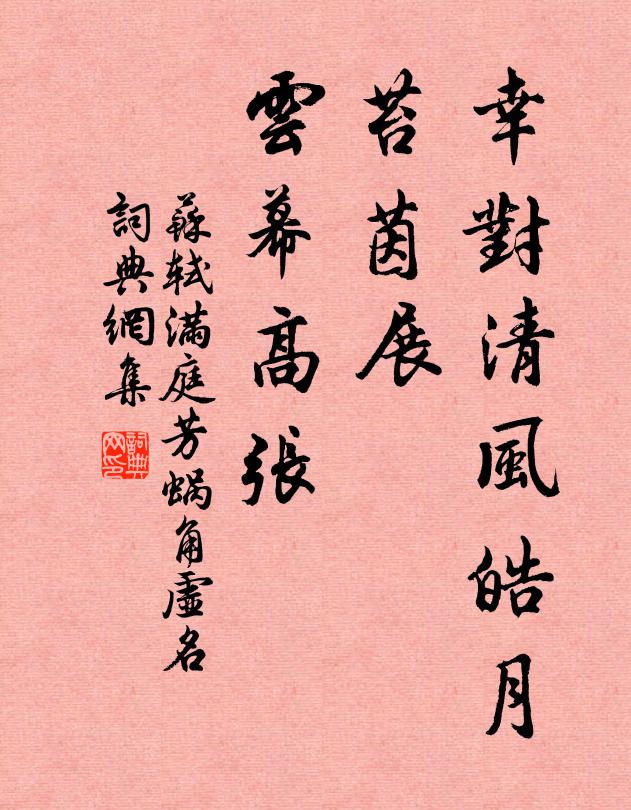 幸對清風皓月
苔茵展
雲幕高張
蘇軾滿庭芳蝸角虛名
詞典網集
詞典網印